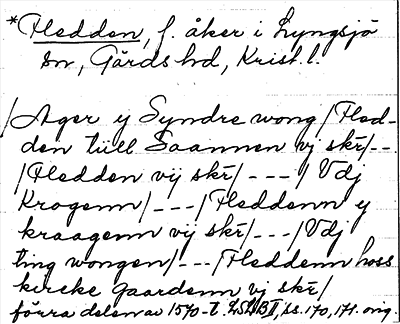 *Fledden, f. åker i Lyngsjö
sn, Gärds hd, Krist. l.
/Ager y Syndre wong/Fled-
den till Saannen vj skr̄/--
/Fledden vij skr̄/---/Vdj
Krogenn/---/Fleddenn y
kraagenn vij skr̄/---/Vdj
ting wongen/---/Fleddenn hoss
kircke gaardenn vj skr̄/
förra delen av 1570-t. ss. 170, 171. orig.